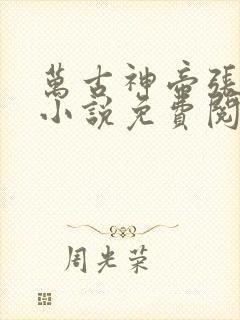 萬古神帝張
小說免費閱
周光荣